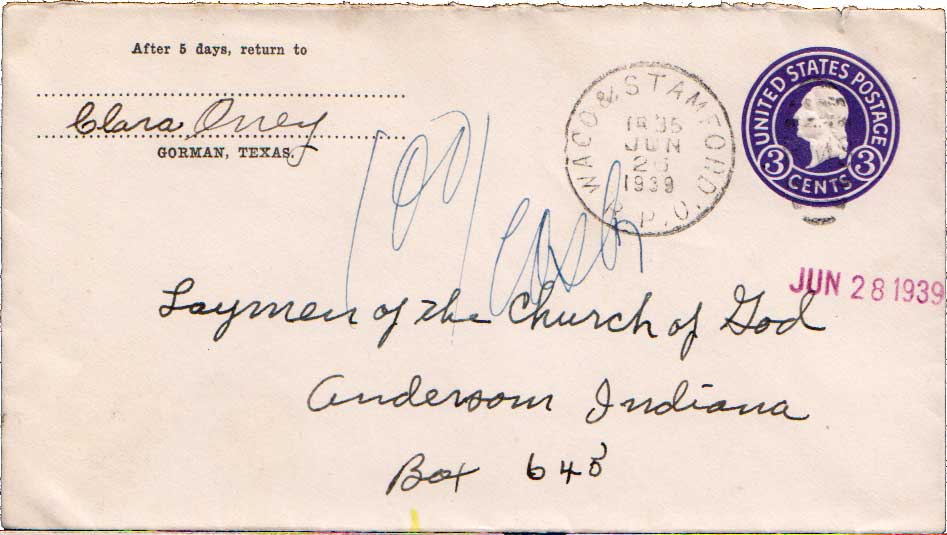 After 5 days, return to
Clara Oney
GORMAN, TEXAS.
WACO & STAMFORD.
JUN
1939
R.P.O.
UNITED STATES POSTAGE
3 CENTS 3
JUN 28 1939
Cash
Laymen of the Church of God
Anderson Indiana
Box 645